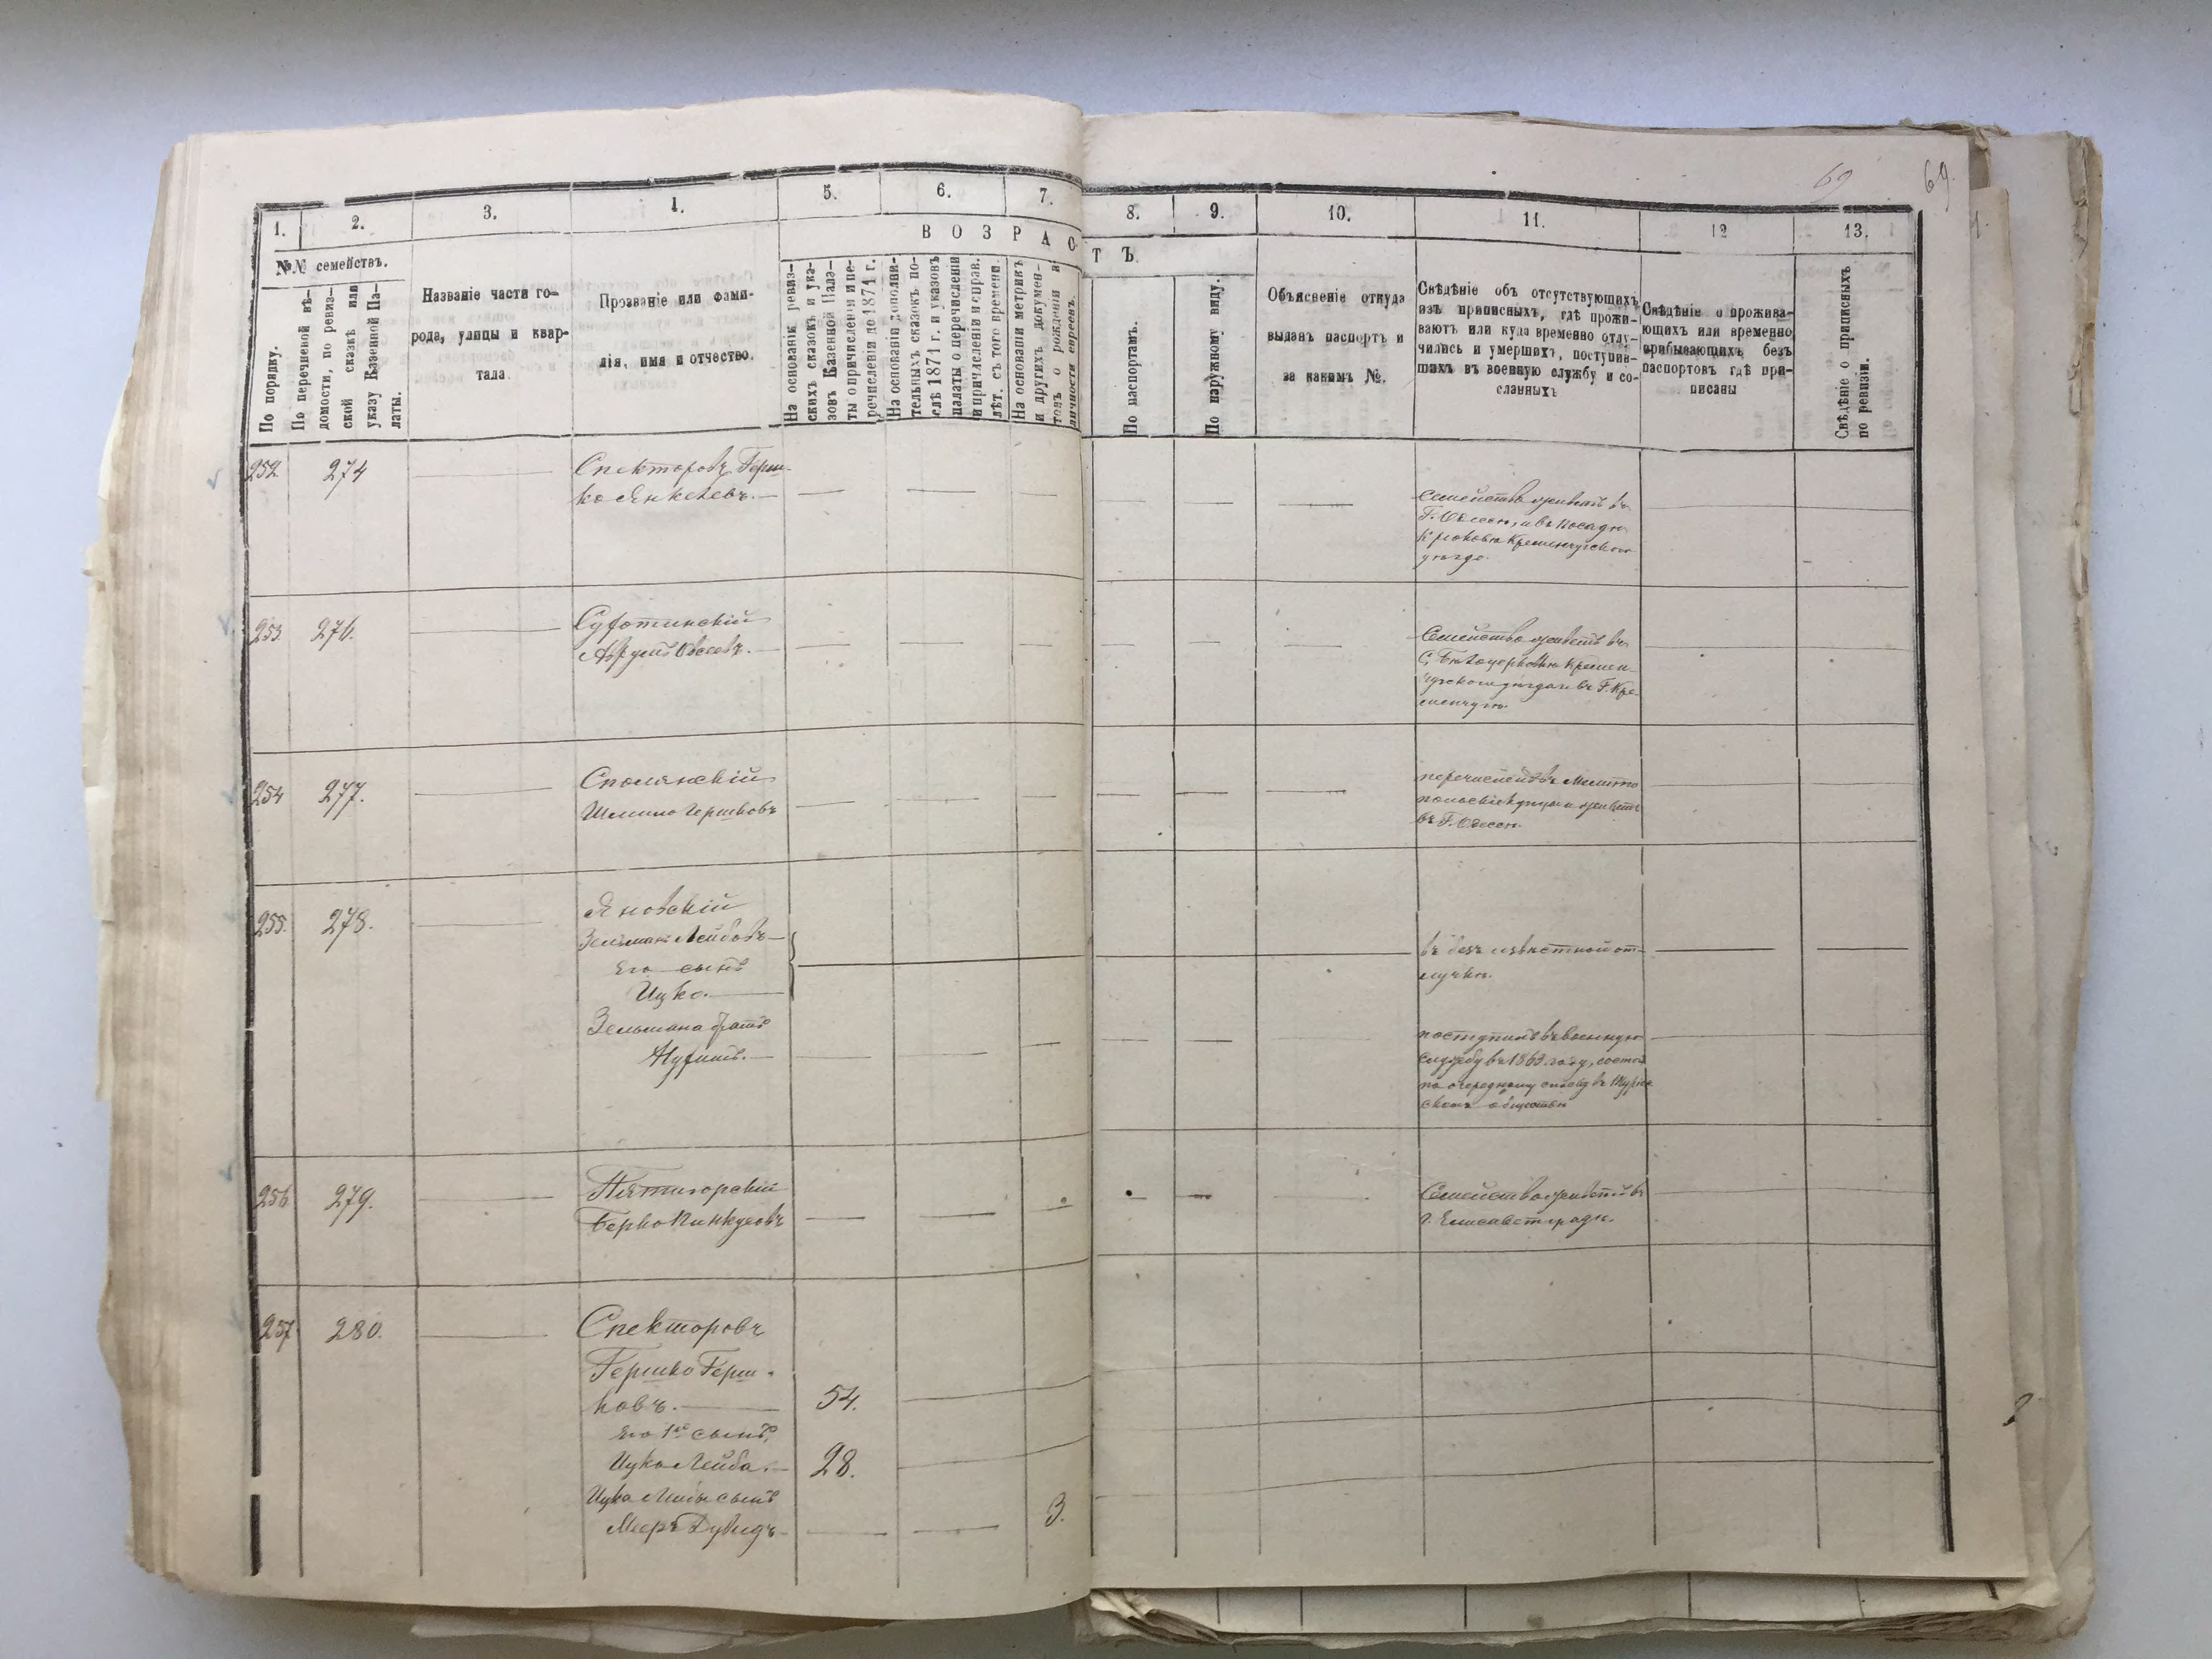 69 69.
1. 2. 3. 4. 5. 6. 7. 8. 9. 10. 11. 12 13.
№№ семействъ.
В О З Р А С Т Ъ
По порядку.
По перечневой вѣ-
домости, по ревиз-
ской сказкѣ или
указу Казенной Па-
латы.
Названіе части го-
рода, улицы и квар-
тала
Прозваніе или фами-
лія, имя и отчество.
На основаніи ревиз-
скихъ сказокъ и ука-
зовъ Казенной Пала-
ты о причисленіи и пе-
речисленіи до 1871 г.
На основаніи дополни-
тельныхъ сказокъ по-
слѣ 1871 г. и указовъ
палаты о перечисленіи
и причленіи и справ.
лѣт. съ того времени.
На основаніи метрикъ
и другихъ докумен-
товъ о рожденіи и
личности евреевъ.
По паспортамъ.
По наружному виду.
Объясненіе откуда
выданъ паспортъ и
за какимъ №.
Свѣдѣніе объ отсутствующихъ
изъ приписныхъ, гдѣ прожи-
ваютъ или куда временно отлу-
чились и умершихъ, поступив-
шихъ въ военную службу и со-
сланныхъ
Свѣдѣніе о прожива-
ющихъ или временно
прибывающихъ безъ
паспортовъ гдѣ при-
писаны
Свѣдѣніе о приписныхъ
по ревизіи.
252 274 Спекторовъ Герш-
ко Янкелевъ.
Семейство живетъ въ
Г. Одессѣ, и въ посадѣ
Крюковѣ Кременчугскаго
уѣзда.
253 276.
Овсеевъ.
Семейство живетъ въ
С. Бѣлоцерковкѣ Кремен-
чугскаго уѣзда и въ Г. Кре-
менчугѣ.
254 277.
Гершковъ
перечисленъ въ Мелито
польскіе купцы и живетъ
въ Г. Одессѣ.
255. 278. Яновскій
Зельманъ Лейбовъ
Его сынъ
Ицко.
Зельмана братъ
въ безъ извѣстной от-
лучкѣ.
поступилъ въ военную
службу въ 1863 году, состоя
по очередному списку въ
скомъ обществѣ
256 279. Пятигорскій
Берко Пинкусовъ
Семейство живетъ въ
г. Елисаветградѣ.
257 280. Спекторовъ
Гершко Герш-
ковъ. 54.
Его 1й сынъ,
Ицко Лейба. 28.
сынъ
Мееръ Дувидъ 3.